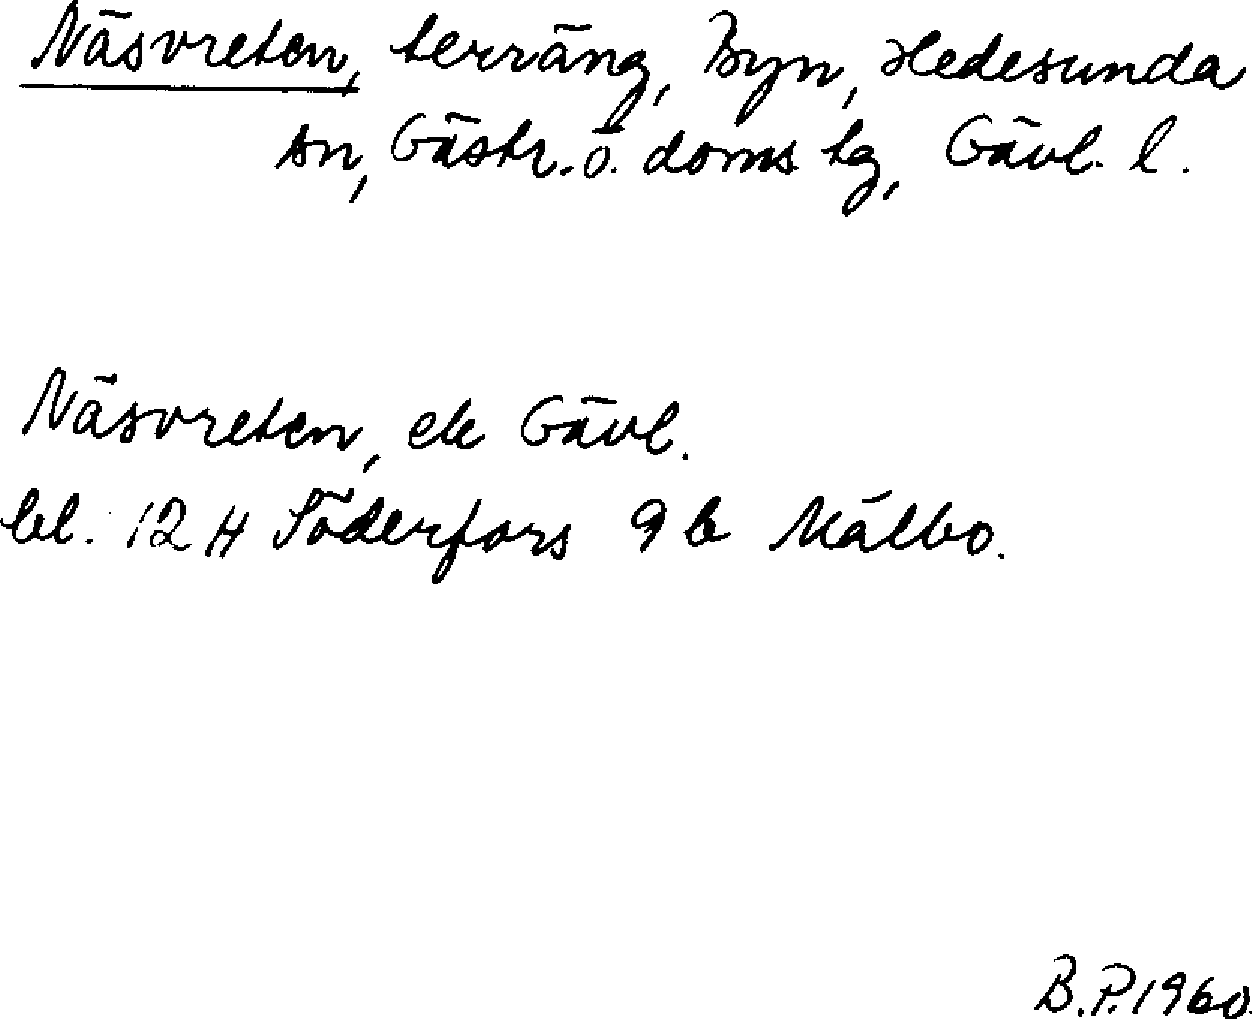 Näsvreten, terräng, Byn, Hedesunda
sn, Gästr. ö. doms tg, Gävl. l.
Näsvreten, ek Gävl.
bl. 12 H Söderfors 9 b Målbo.
B.P. 1960.